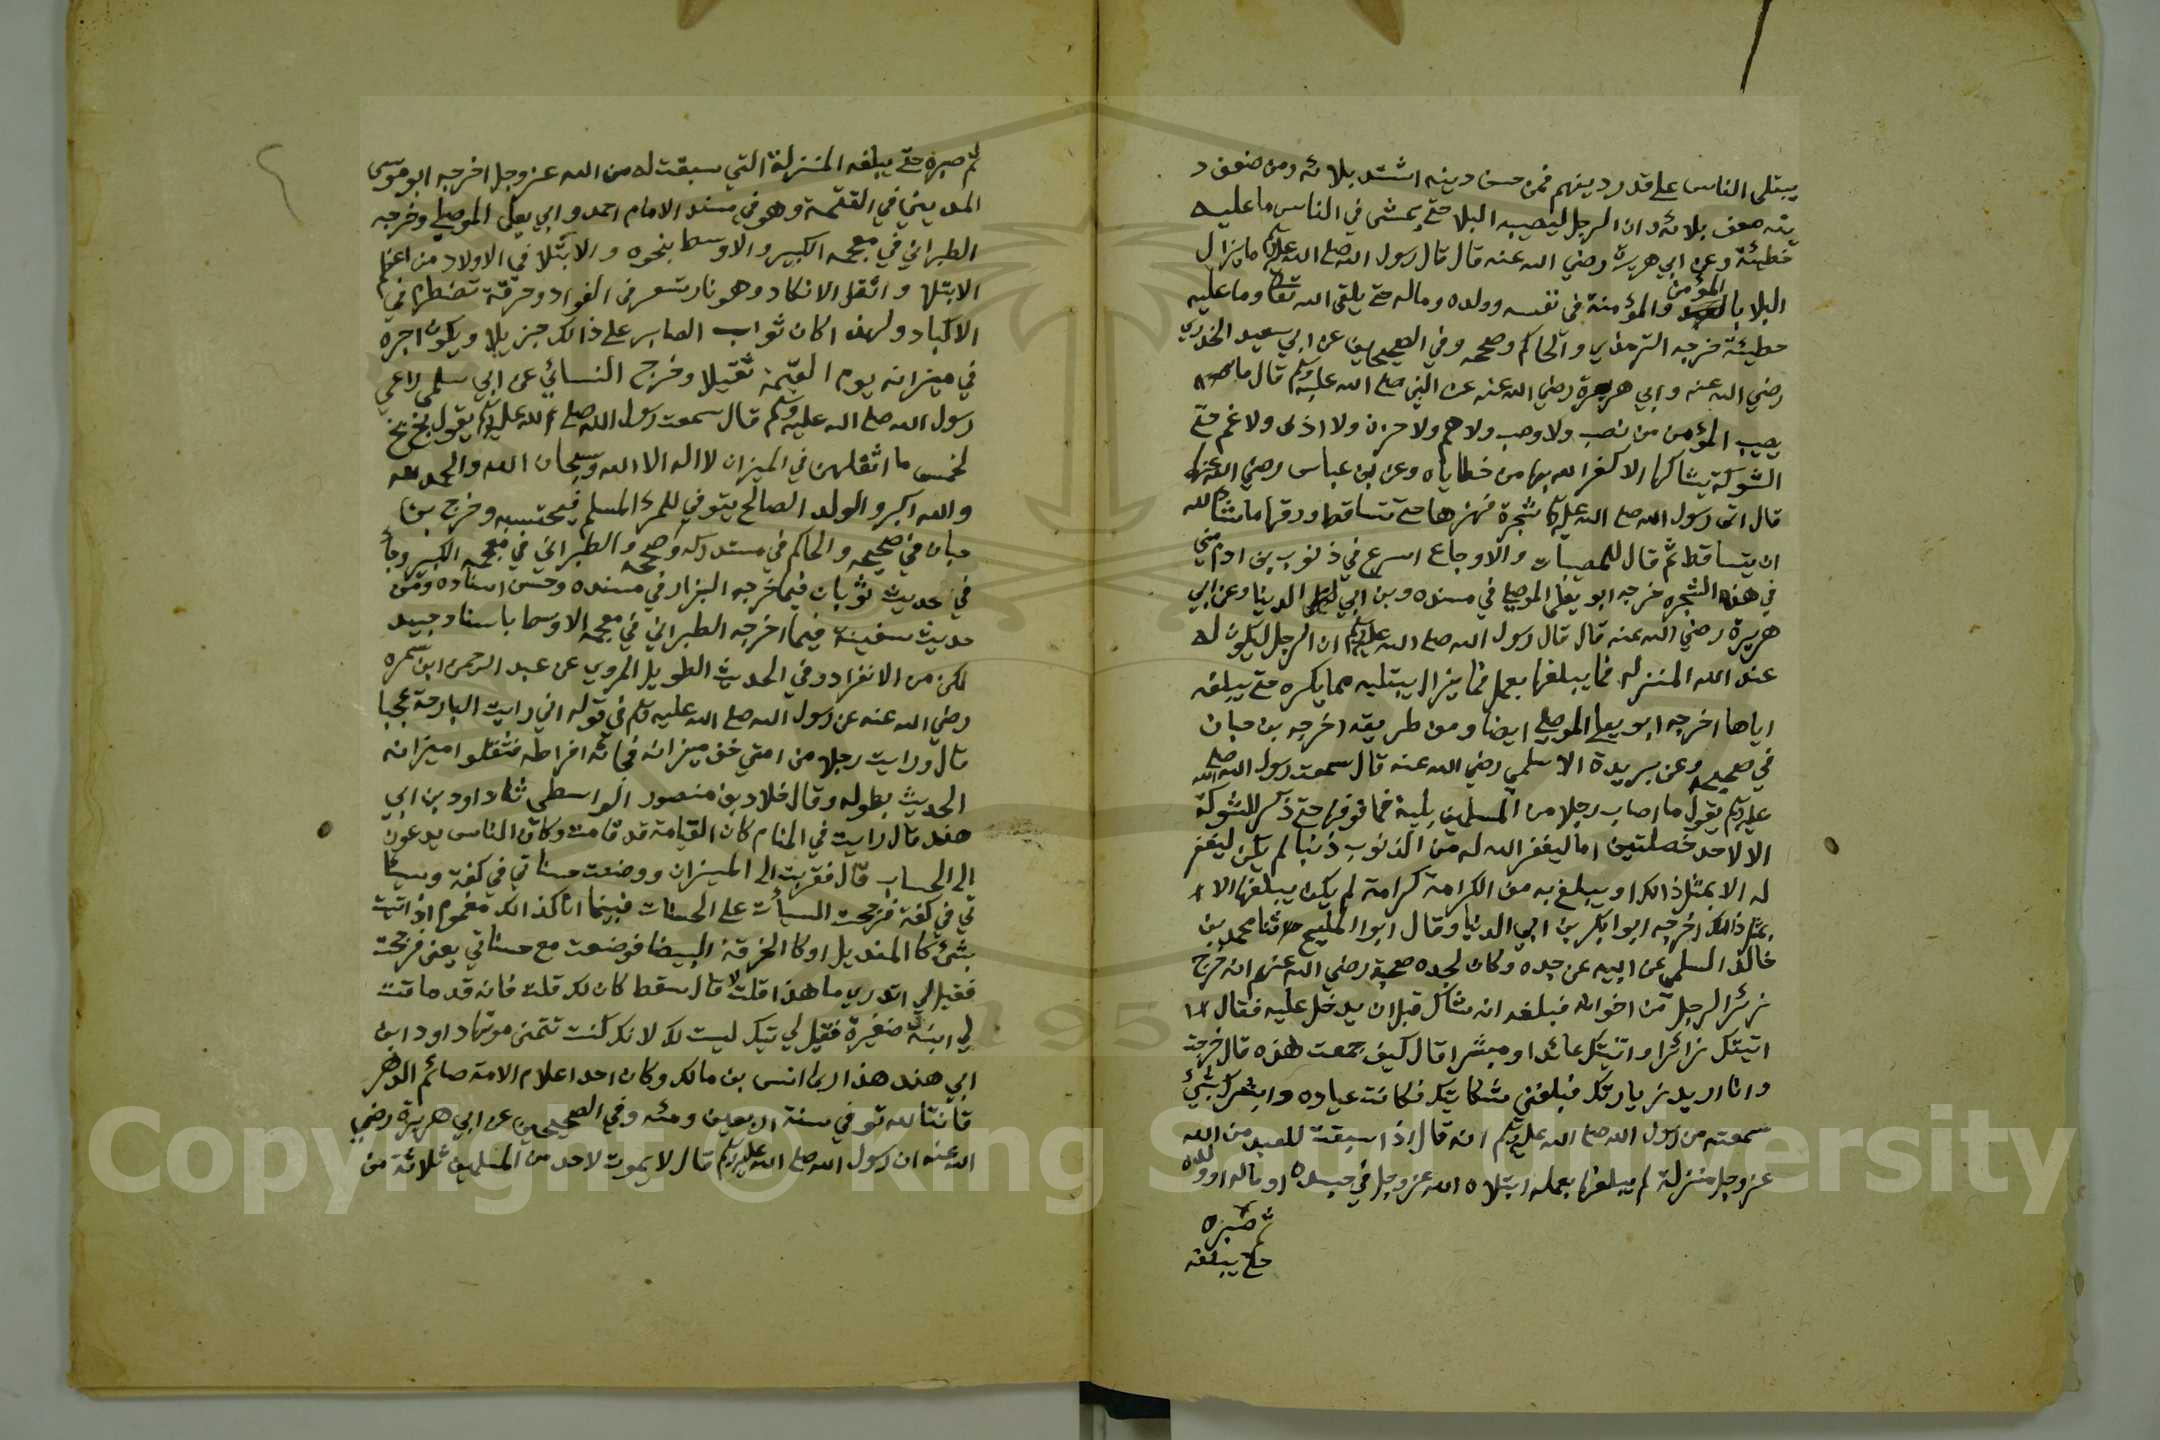 يبتلى الناس على قدر دينهم فمن حسن دينه اشتد بلائه ومن ضعف د
ينه ضعف بلائه وان الرجل ليصيبه البلا حتى يمشى في الناس ما عليه
خطيئة وعن ابي هريرة رضي الله عنه قال قال رسول الله صلى الله عليه وسلم ما يزال
البلا بالمؤمن والمؤمنة في نفسه وولده وماله حتى يلقى الله تعالى وما عليه
خطيئة خرجه الترمذي والحاكم وصححه وفي الصحيحين عن ابي سعيد الخدري
رضي الله عنه وابي هريرة رضي الله عنه عن النبي صلى الله عليه وسلم قال ما
يصيب المؤمن من نصب ولا وصب ولا هم ولا حزن ولا اذى ولا غم حتى
الشوكة يشاكها الا كفر الله بها من خطاياه وعن بن عباس رضي الله عنهما
قال اتى رسول الله صلى الله عليه وسلم شجرة فهزها حتى تساقط ورقها ما شا الله
ان يتساقط ثم قال للمصيبات والاوجاع اسرع في ذنوب بن ادم مني
في هذه الشجره خرجه ابو يعلى الموصلي في مسنده وبن ابي الدنيا وعن ابي
هريرة رضي الله عنه قال قال رسول الله صلى الله عليه وسلم ان الرجل ليكون له
عند الله المنزله فما يبلغها بعمل فما يزال يبتليه بما يكره حتى يبلغه
اياها اخرجه ابو يعلى الموصلي ايضا ومن طريقه اخرجه بن حبان
في صحيحه وعن بريدة الاسلمي رضي الله عنه قال سمعت رسول الله صلى الله
عليه وسلم يقول ما اصاب رجلا من المسلمين بلية فما فوقها حتى ذكر الشوكة
الا لاحد خصلتين اما ليغفر الله له من الذنوب ذنبا لم يكن ليغفر
له الا بمثل ذالك او يبلغ به من الكرامة كرامة لم يكن يبلغها الا
بمثل ذالك اخرجه ابوا بكر بن ابي الدنيا وقال ابوا المليح حدثنا محمد بن
خالد السلمي عن ابيه عن جده وكان لجده صحبة رضي الله عنهم انه خرج
زائرا لرجل من اخوانه فبلغه انه شاك قبل ان يدخل عليه فقال
اتيتك زائرا واتيتك عائدا ومبشرا قال كيف جمعت هذه قال خرجت
وانا اريد زيارتك فبلغني شكايتك فكانت عياده وابشرك بشئ
سمعته من رسول الله صلى الله عليه وسلم انه قال اذا سبقت للعبد من الله
عز وجل منزلة لم يبلغها بعمله ابتلاه الله عز وجل في جسده او ماله او ولده
ثم صبره
حتى يبلغه
ثم صبره حتى يبلغه المنزلة التي سبقت له من الله عز وجل اخرجه ابو موسى
المديني في التتمة وهو في مسند الامام احمد وابي يعلى الموصلي وخرجه
الطبراني في معجمه الكبير والاوسط بنحوه والابتلا في الاولاد من اعظم
الابتلا واثقل الانكاد وهو نار تستعر في الفواد وحرقة تضطرم في
الاكباد ولهذا كان ثواب الصابر على ذالك جزيلا ويكون اجره
في ميزانه يوم القيمة ثقيلا وخرج النسائي عن ابي سلمى راعي
رسول الله صلى الله عليه وسلم قال سمعت رسول الله صلى الله عليه وسلم يقول بخ بخ
لخمس ما اثقلهن في الميزان لا اله الا الله وسبحان الله والحمد لله
والله اكبر والولد الصالح يتوفي للمرء المسلم فيحتسبه وخرج بن
حبان في صحيحه والحاكم في مستدركه وصححه والطبراني في معجمه الكبير وجأ
في حديث ثوبان فيما خرجه البزار في مسنده وحسن اسناده ومن
حديث سفينة فيما اخرجه الطبراني في معجمه الاوسط باسناد جيد
لكن من الانفراد وفي الحديث الطويل المروي عن عبد الرحمن ابن سمره
رضي الله عنه عن رسول الله صلى الله عليه وسلم في قوله اني رايت البارحة عجبا
قال ورايت رجلا من امتي خف ميزانه فجائه افراطه فثقلوا ميزانه
الحديث بطوله وقال خلاد بن منصور الواسطي ثنا داود بن ابي
هند قال رايت في المنام كان القيامة قد قامت وكان الناس يدعون
الى الحساب قال فقربت الى الميزان ووضعت حسناتي في كفة وسيئا
تي في كفة فرجحت السيأت على الحسنات فبينما انا كذالك مغموم اذ اتيت
بشئ كا المنديل او كا الخرقة البيضا فوضعت مع حسناتي يعني فرجحت
فقيل لي اتدري ما هذا قلت لا قال سقط كان لك قلت فانه قد ماتت
لي ابنة صغيرة فقيل لي تيك ليست لك لانك كنت تتمنى موتها داود ابن
ابي هند هذا راى انس بن مالك وكان احد اعلام الامة صائم الدهر
قانتا لله توفي سنة اربعين ومئه وفي الصحيحين عن ابي هريرة رضي
الله عنه ان رسول الله صلى الله عليه وسلم قال لا يموت لاحد من المسلمين ثلاثة من
Copyright © King Saud University
1957